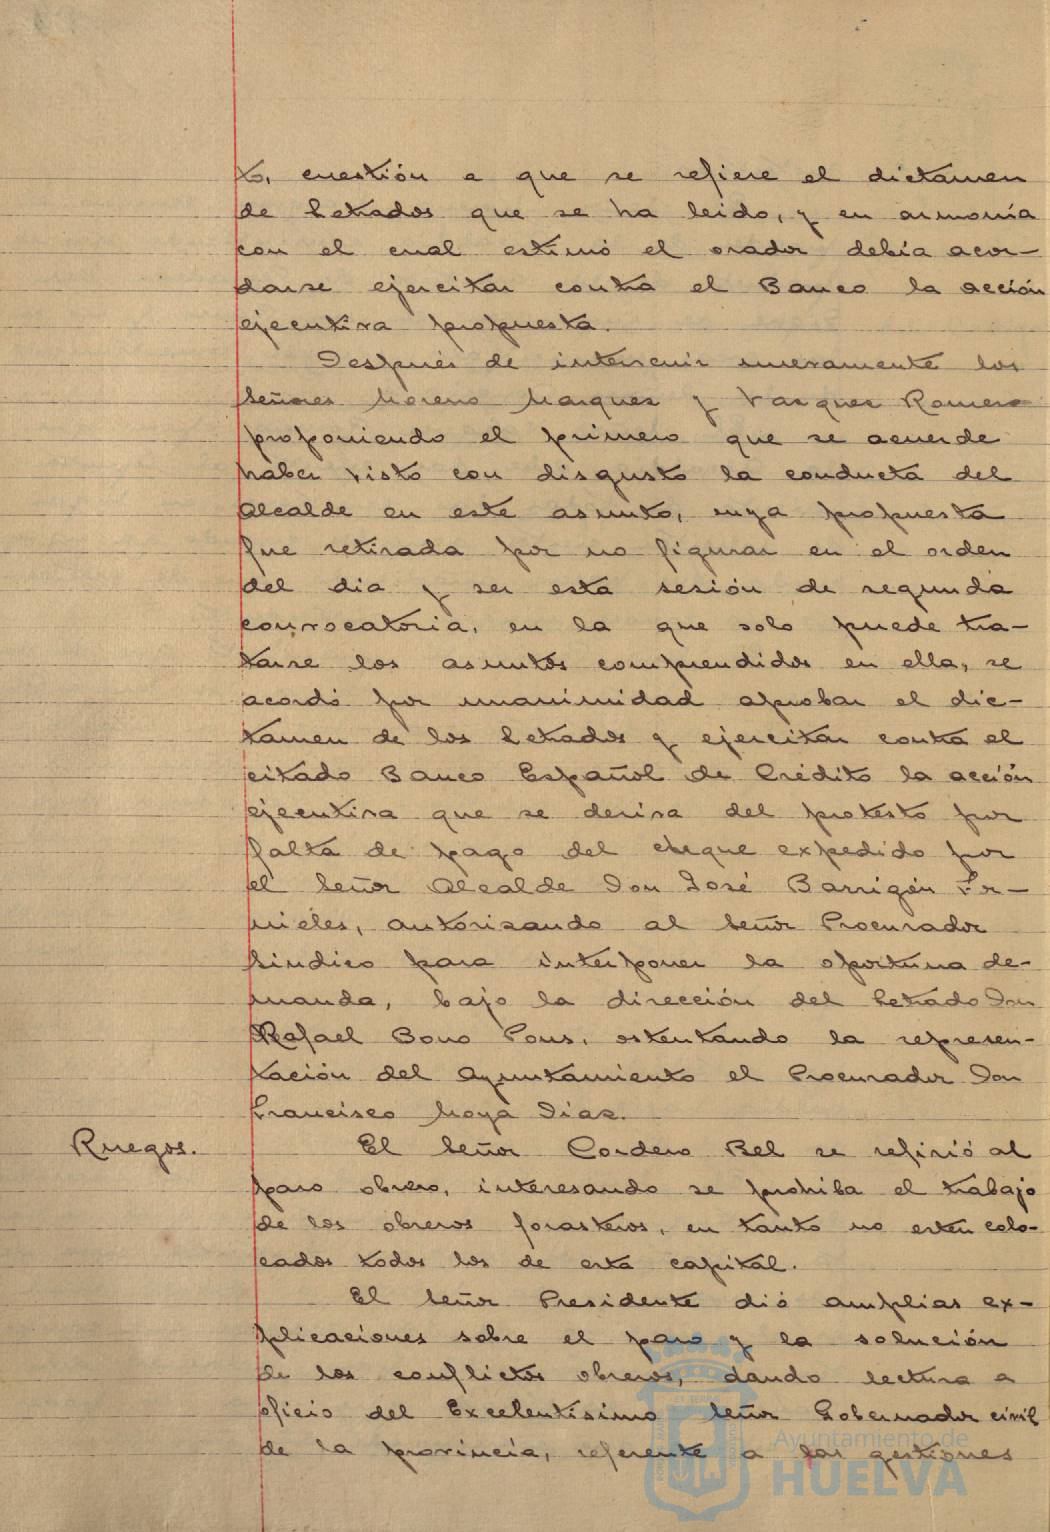 to, cuestión a que se refiere el dictamen
de Letrados que se ha leido, y en armonía
con el cual estimó el orador debía acor-
darse ejercitar contra el Banco la acción
ejecutiva propuesta.
Después de intervenir nuevamente los
Señores Moreno Marquez y Vazquez Romero
proponiendo el primero que se acuerde
haber visto con disgusto la conducta del
Alcalde en este asunto, cuya propuesta
fue retirada por no figurar en el orden
del dia y ser esta sesión de segunda
convocatoria, en la que solo puede tra-
tarse los asuntos comprendidos en ella, se
acordó por unanimidad aprobar el dic-
tamen de los Letrados y ejercitar contra el
citado Banco Español de Crédito la acción
ejecutiva que se deriva del protesto por
falta de pago del cheque expedido por
el Señor Alcalde Don José Barrigón For-
nieles, autorizando al Señor Procurador
Sindico para interponer la oportuna de-
manda, bajo la dirección del Letrado Don
Rafael Bono Pons, ostentando la represen-
tación del Ayuntamiento el Procurador Don
Francisco Moya Diaz.
Ruegos. El Señor Cordero Bel se refirió al
paro obrero, interesando se prohiba el trabajo
de los obreros forasteros, en tanto no estén colo-
cados todos los de esta capital.
El Señor Presidente dió amplias ex-
plicaciones sobre el paro y la solución
de los conflictos obreros, dando lectura a
oficio del Excelentísimo Señor Gobernador civil
de la provincia, referente a las gestiones
Ayuntamiento de
HUELVA